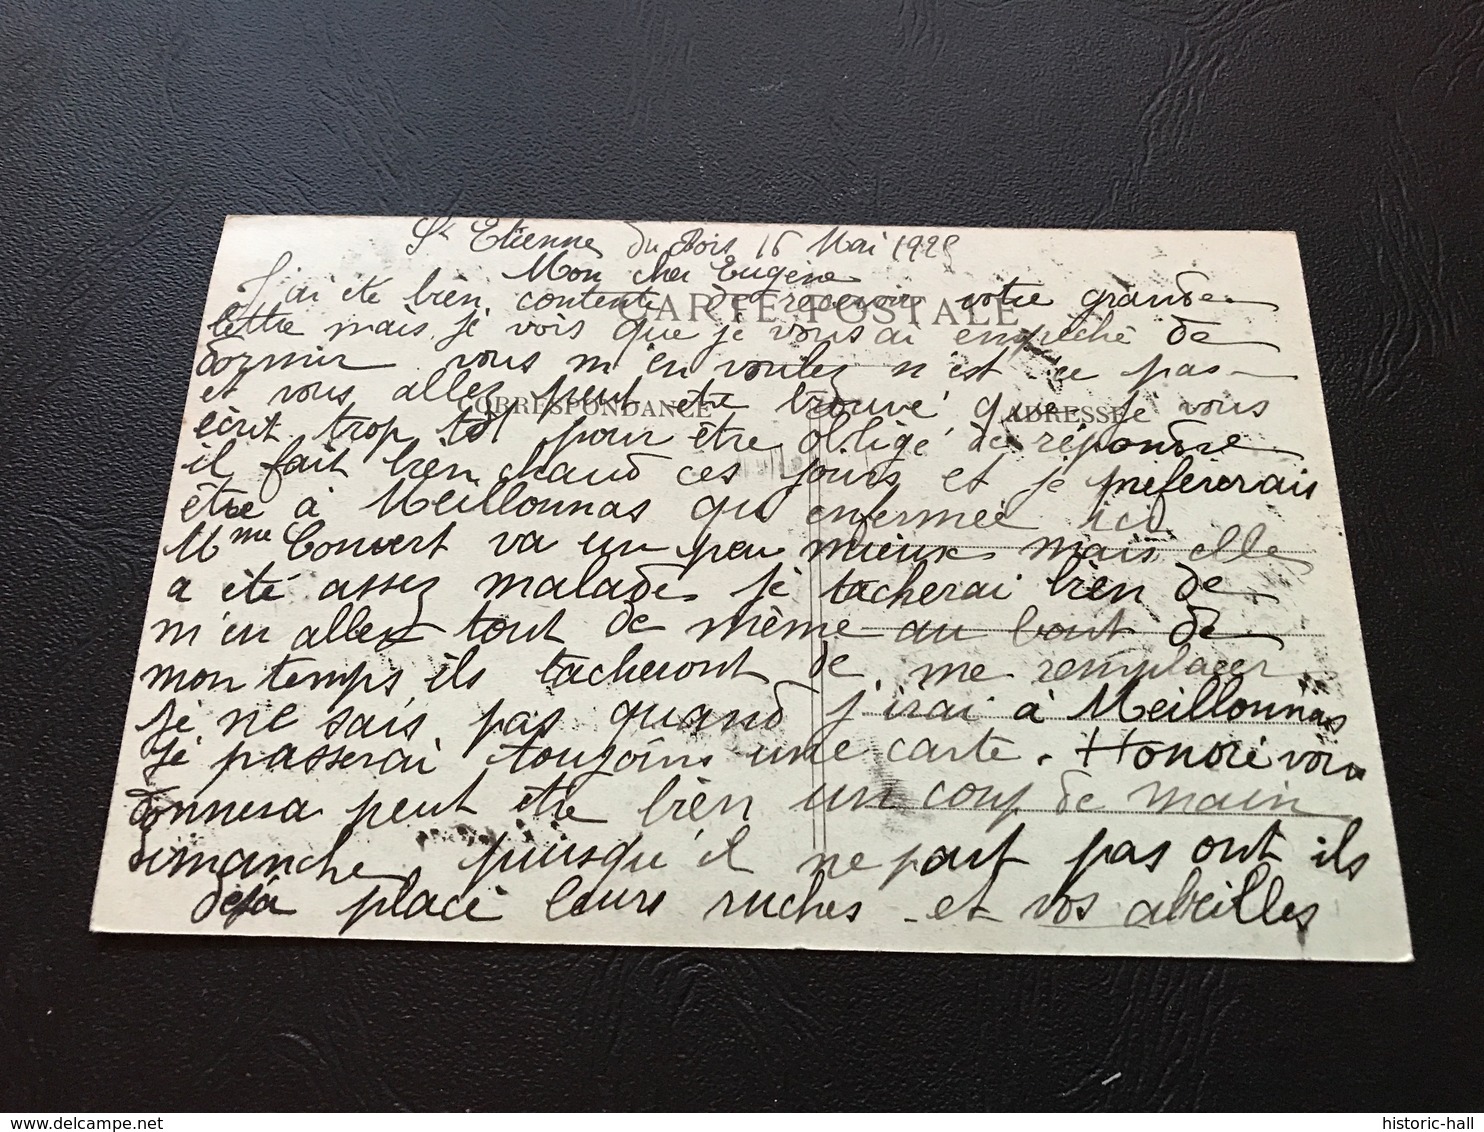 St Etienne du Bois 16 Mai 192
Mon cher Eugène
J'ai été bien contente de recevoir votre grande
CARTE POSTALE
lettre mais je vois que je vous ai empeché de
dormir vous m'en voulez n'est ce pas
et vous allez peut etre trouvé que je vous
CORRESPONDANCE
ADRESSE
écrit trop tôt pour être obligé de répondre
il fait bien chaud ces jours et je préférerais
être à Meillonnas qu'enfermée ici
Mme Convert va un peu mieux mais elle
a été assez malade je tacherai bien de
m'en allez tout de même au bout de
mon temps ils tacheront de me remplacer
je ne sais pas quand j'irai à Meillonnas
je passerai toujours une carte. Honoré vous
donnera peut être bien un coup de main
dimanche puisqu'il ne part pas ont ils
déjà placé leurs ruches - et vos abeilles
historic-hall